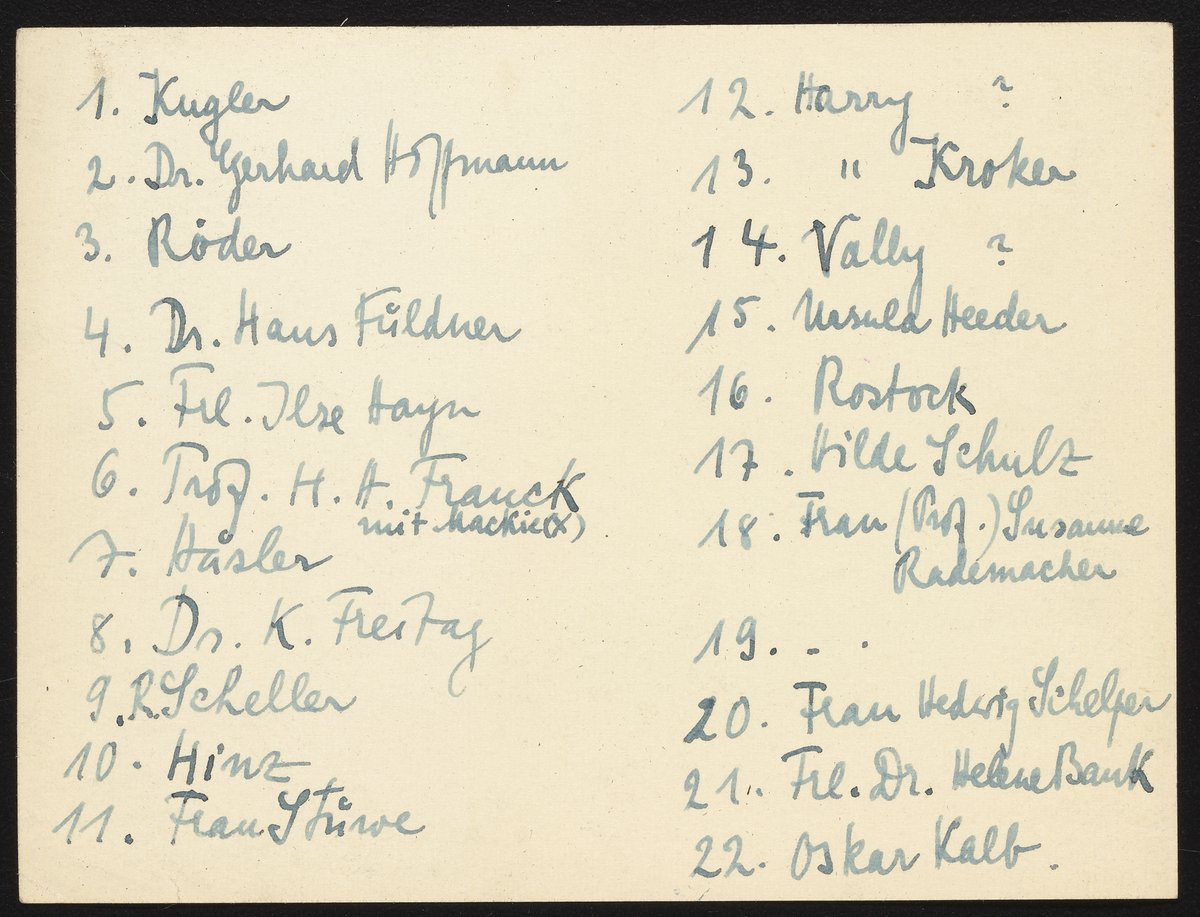 1. Kugler
2. Dr. Gerhard Hoffmann
3. Röder
4. Dr. Hans Füldner
5. Frl. Ilse Hayn
6. Prof. H. H. Franck
mit Mackie(x)
7. Häsler
8. Dr. K. Freitag
9. R. Scheller
10. Hinz
11. Frau Stüwe
12. Harry ?
13. " Kroker
14. Vally ?
15. Ursula Heeder
16. Rostock
17. Hilde Schulz
18. Frau (Prof.) Susanne
Rademacher
19. - .
20. Frau Hedwig Schelper
21. Frl. Dr. Helene Bank
22. Oskar Kalb.